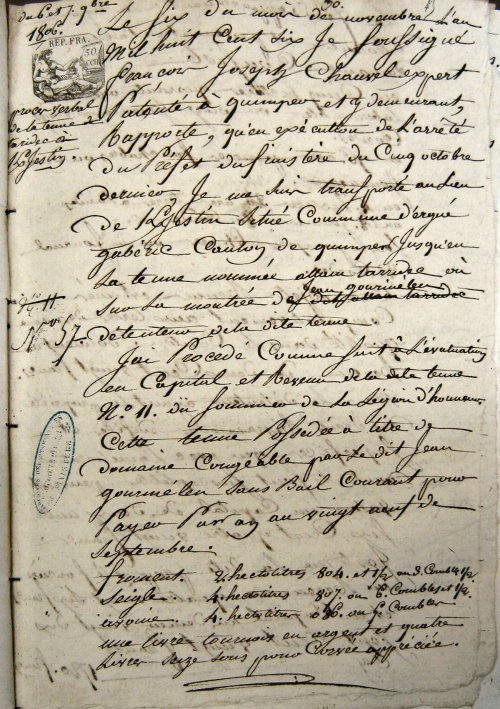 du 6 et 7 9bre
1806.
RÉP. FRA.
50
procès verbal
de la tenue
tarridec à
Kjestin.
Le six du mois de novembre L'an
Mil huit Cent Six Je Soussigné
françois Joseph Chauvel expert
Patenté à quimper et y demeurant,
Rapporte, qu'en exécution de L'arrêté
du Préfet du finistère du Cinq octobre
dernier, Je me suis transporté au Lieu
de Kjestin Situé Commune d'ergué
gabéric Canton de quimper Jusqu'en
La tenue nommée allain tarridec où
Jean gourmelen
Sur La montrée de
détenteur de la dite tenue
N.o 11.
57.
J'ai Procédé Comme Suit à L'évaluation
en Capital et Revenu de la dite tenue
N.o 11. du Sommier de La Légion d'honneur
Cette tenue Possedée à titre de
domaine Congéable par Le dit Jean
gourmélen Sans Bail Courant pour
Payer Par an au vingt neuf de
Septembre.
froment. 2. hectolitres 804. et 1/2 ou 3. Combles 1/2
Seigle. 4. hectolitres 807. ou 6. Combles et 1/2.
avoine. 4. hectolitres 086. ou 4. Combles
une livre tournois en argent et quatre
Livres Seize Sous pour Corvée appréciée.